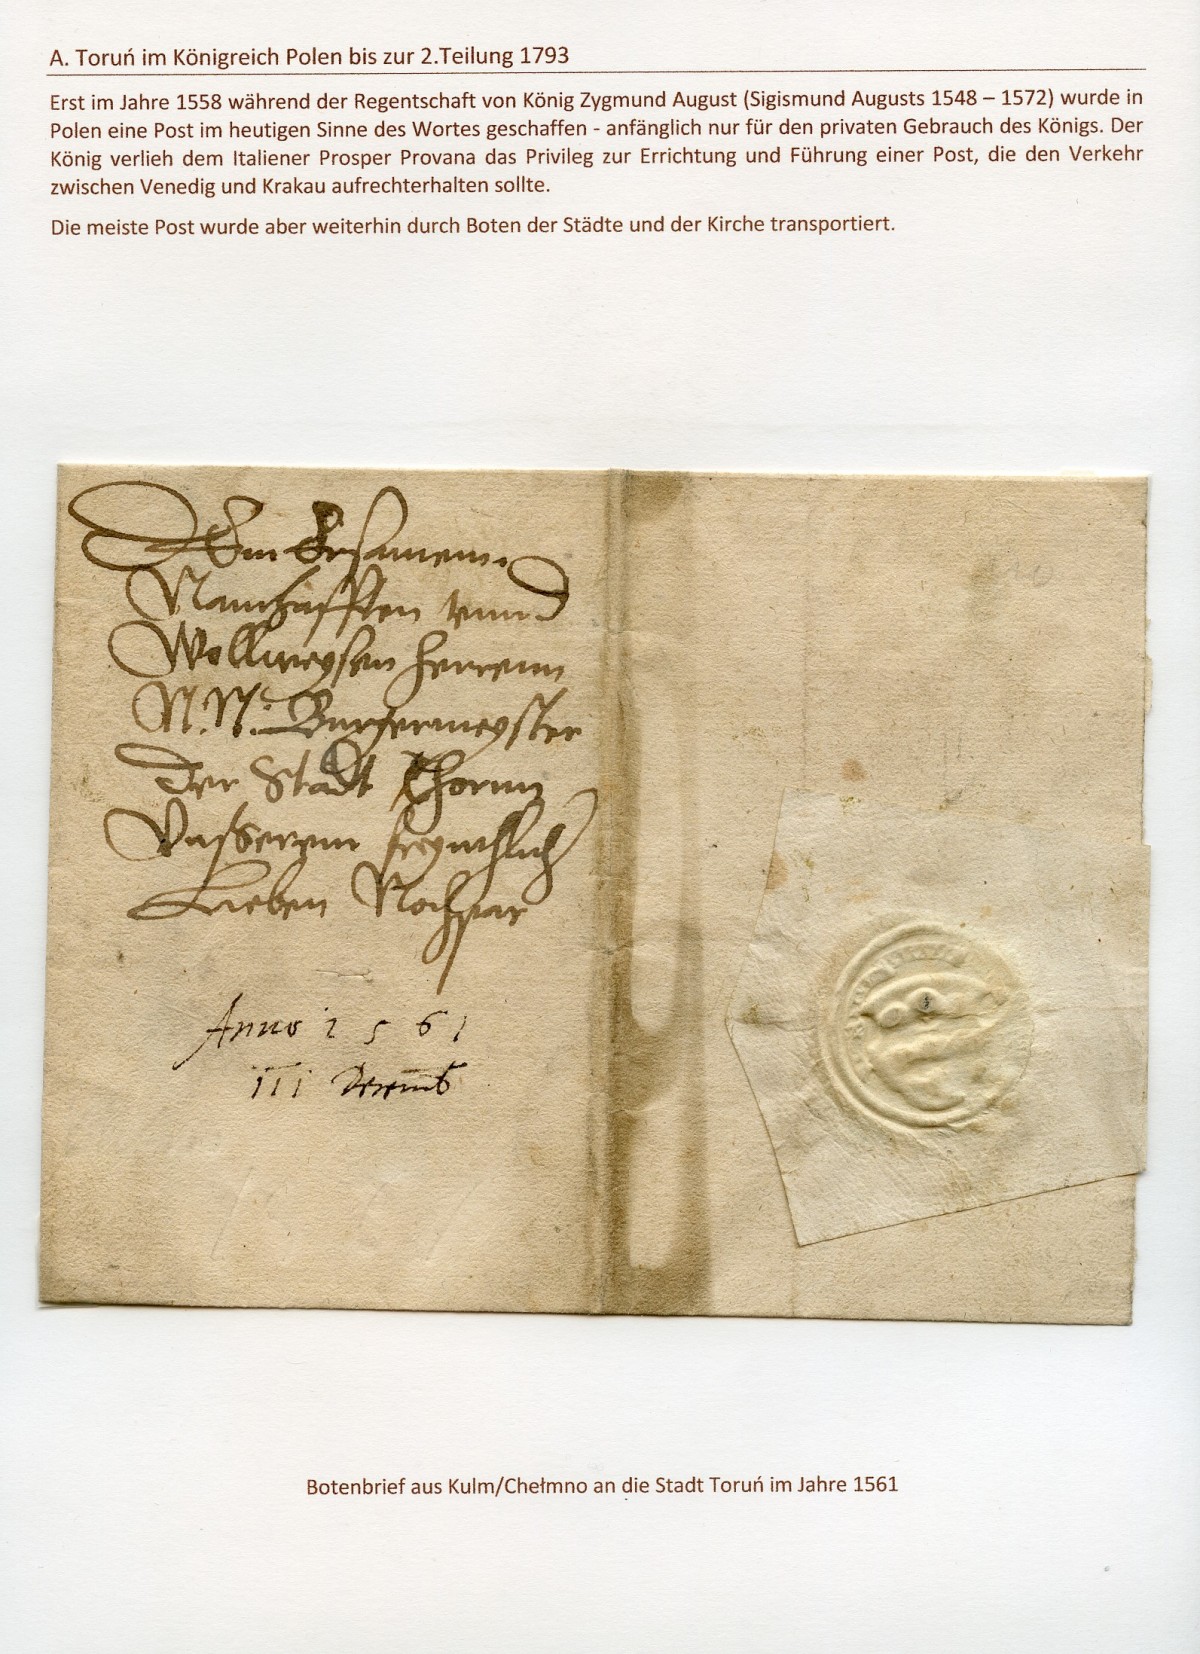 A. Toruń im Königreich Polen bis zur 2.Teilung 1793
Erst im Jahre 1558 während der Regentschaft von König Zygmund August (Sigismund Augusts 1548 – 1572) wurde in
Polen eine Post im heutigen Sinne des Wortes geschaffen - anfänglich nur für den privaten Gebrauch des Königs. Der
König verlieh dem Italiener Prosper Provana das Privileg zur Errichtung und Führung einer Post, die den Verkehr
zwischen Venedig und Krakau aufrechterhalten sollte.
Die meiste Post wurde aber weiterhin durch Boten der Städte und der Kirche transportiert.
Dem Ersamenn
Namhafften vnnd
Wollweysen herrenn
N.N. Burgermeyster
Der Stadt Thorun
Vnsserem
Lieben Nochpar
Anno 1561
III Decemb
Botenbrief aus Kulm/Chełmno an die Stadt Toruń im Jahre 1561